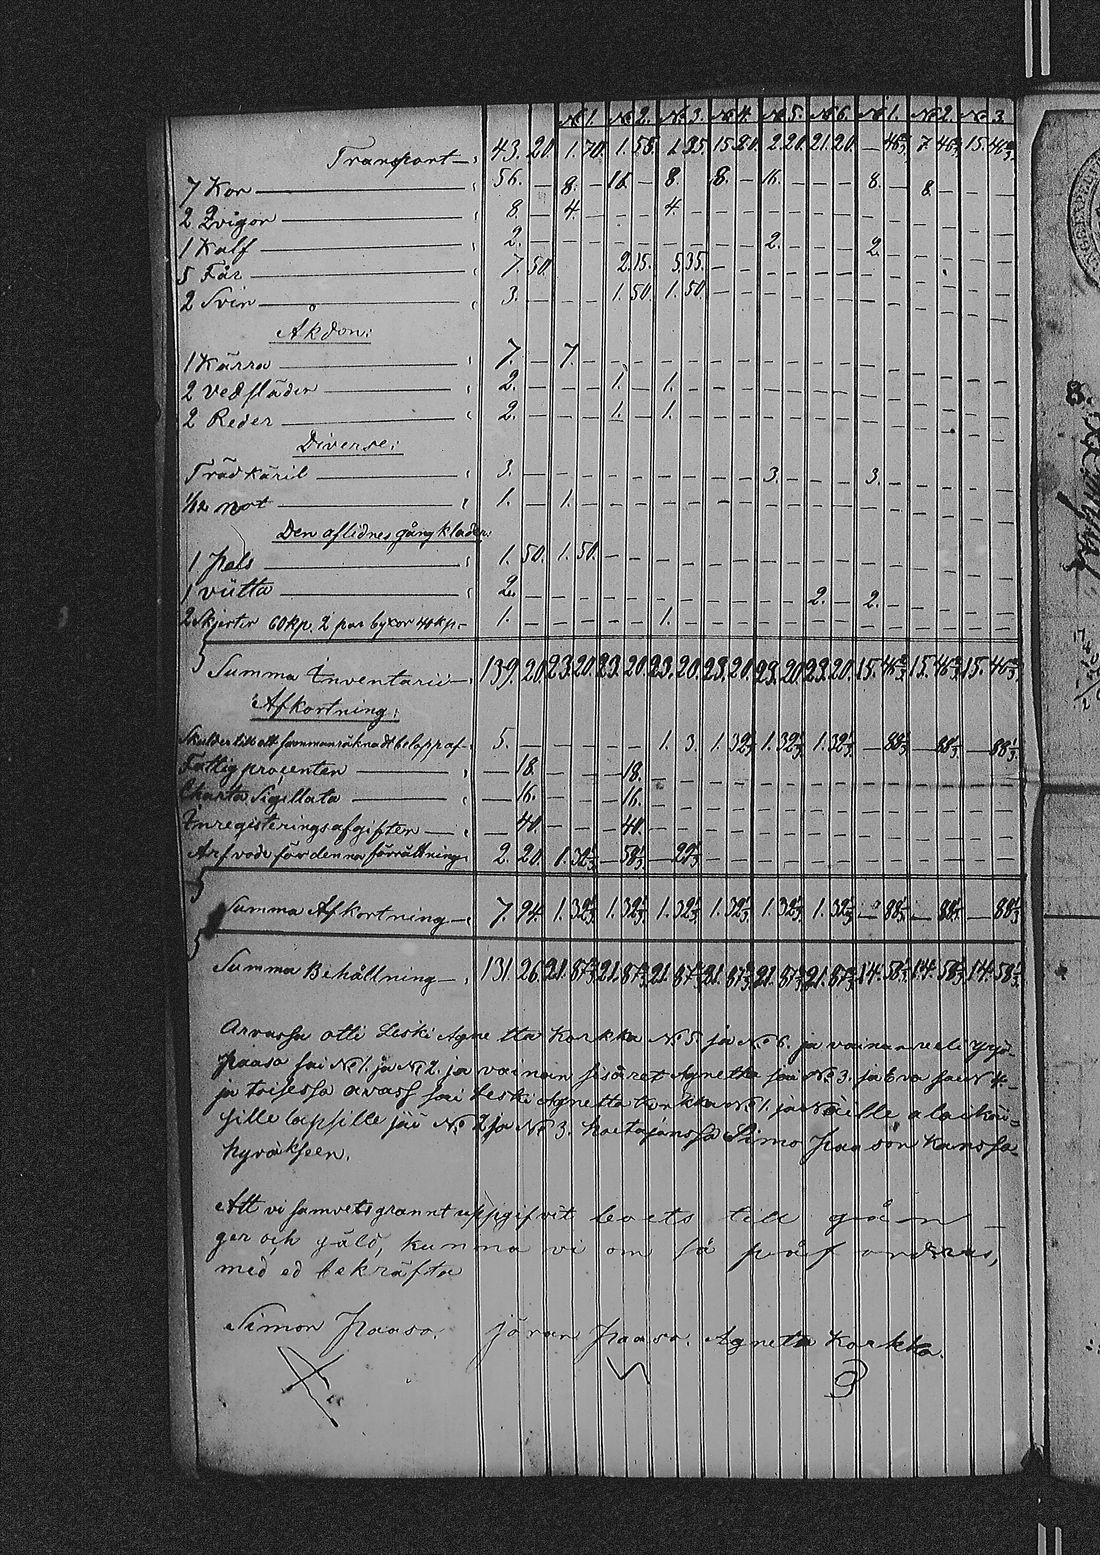 № 1. № 2. № 3. № 4. № 5. № 6. № 1. № 2. № 3.
Transport 43. 20. 1. 70. 1. 55. 1. 35. 15. 20. 2. 20. 21. 20. — 46⅔ 7. 46⅔ 15. 46⅔
7 Kor 56. — 8. — 16. — 8. — 8. — 16. — — — 8. — 8. — — —
2 Qvigor 8. — 4. — — — 4. —
1 Kalf 2. — 2. — 2. —
5 Får 7. 50. 2. 15. 5. 35. —
2 Svin 3. — 1. 50. 1. 50. —
Åkdon:
1 Kärra 7. — 7. —
2 vedslädin 2. — 1. — 1. —
2 Reder 2. — 1. — 1. —
Diverse:
Trädkäril 3. — 3. — 3. —
1/12 not 1. — 1. —
Den aflidnes gångkläder
1 päls 1. 50. 1. 50. —
1 vütta 2. — 2. — 2. —
2 Skjortir 60 kp. 2 par byxor 40 kp. 1. — 1. —
Summa Inventarie 139. 20. 23. 20. 23. 20. 23. 20. 23. 20. 23. 20. 23. 20. 15. 46⅔ 15. 46⅔ 15. 46⅔
Afkortning:
Skulder till ett sammanräknadt belopp af 5. — 1. 3. 1. 32⅓ 1. 32⅓ 1. 32⅓ — 88⅓ — 88⅓ — 88⅓
Fattigprocenten — 18. — 18. —
Charta Sigillata — 16. — 16. —
Inregisteringsafgiften — 40. — 40. —
Arfvode för denna förrättning 2. 20. 1. 32⅓ — 58⅓ — 29⅓
Summa Afkortning 7. 94. 1. 32⅓ 1. 32⅓ 1. 32⅓ 1. 32⅓ 1. 32⅓ 1. 32⅓ — 88⅓ — 88⅓ — 88⅓
Summa Behållning 131. 26. 21. 87⅔ 21. 87⅔ 21. 87⅔ 21. 87⅔ 21. 87⅔ 21. 87⅔ 14. 58⅓ 14. 58⅓ 14. 58⅓
Arvassa otti Leski Agnetta Korkka № 5. ja № 6. ja vainan veli Yrjö
Paaso sai № 1. ja № 2. ja vainan sisäret Agnetha sai № 3. ja Eva sai № 4
ja toisessa arvass sai Leski Agnetta Korkka № 1. ja Näille alaikäi=
sille lapsille jäi № 2 ja № 3. hoitajanssa Simo Paason kanssa
hyväkseen.
Att vi samvetsgrannt uppgifvit boets till gån
gar och gäld, kunna vi om så påfordras,
med ed bekräfta
Simon Paaso. Jöran Paaso. Agneta Korkka.